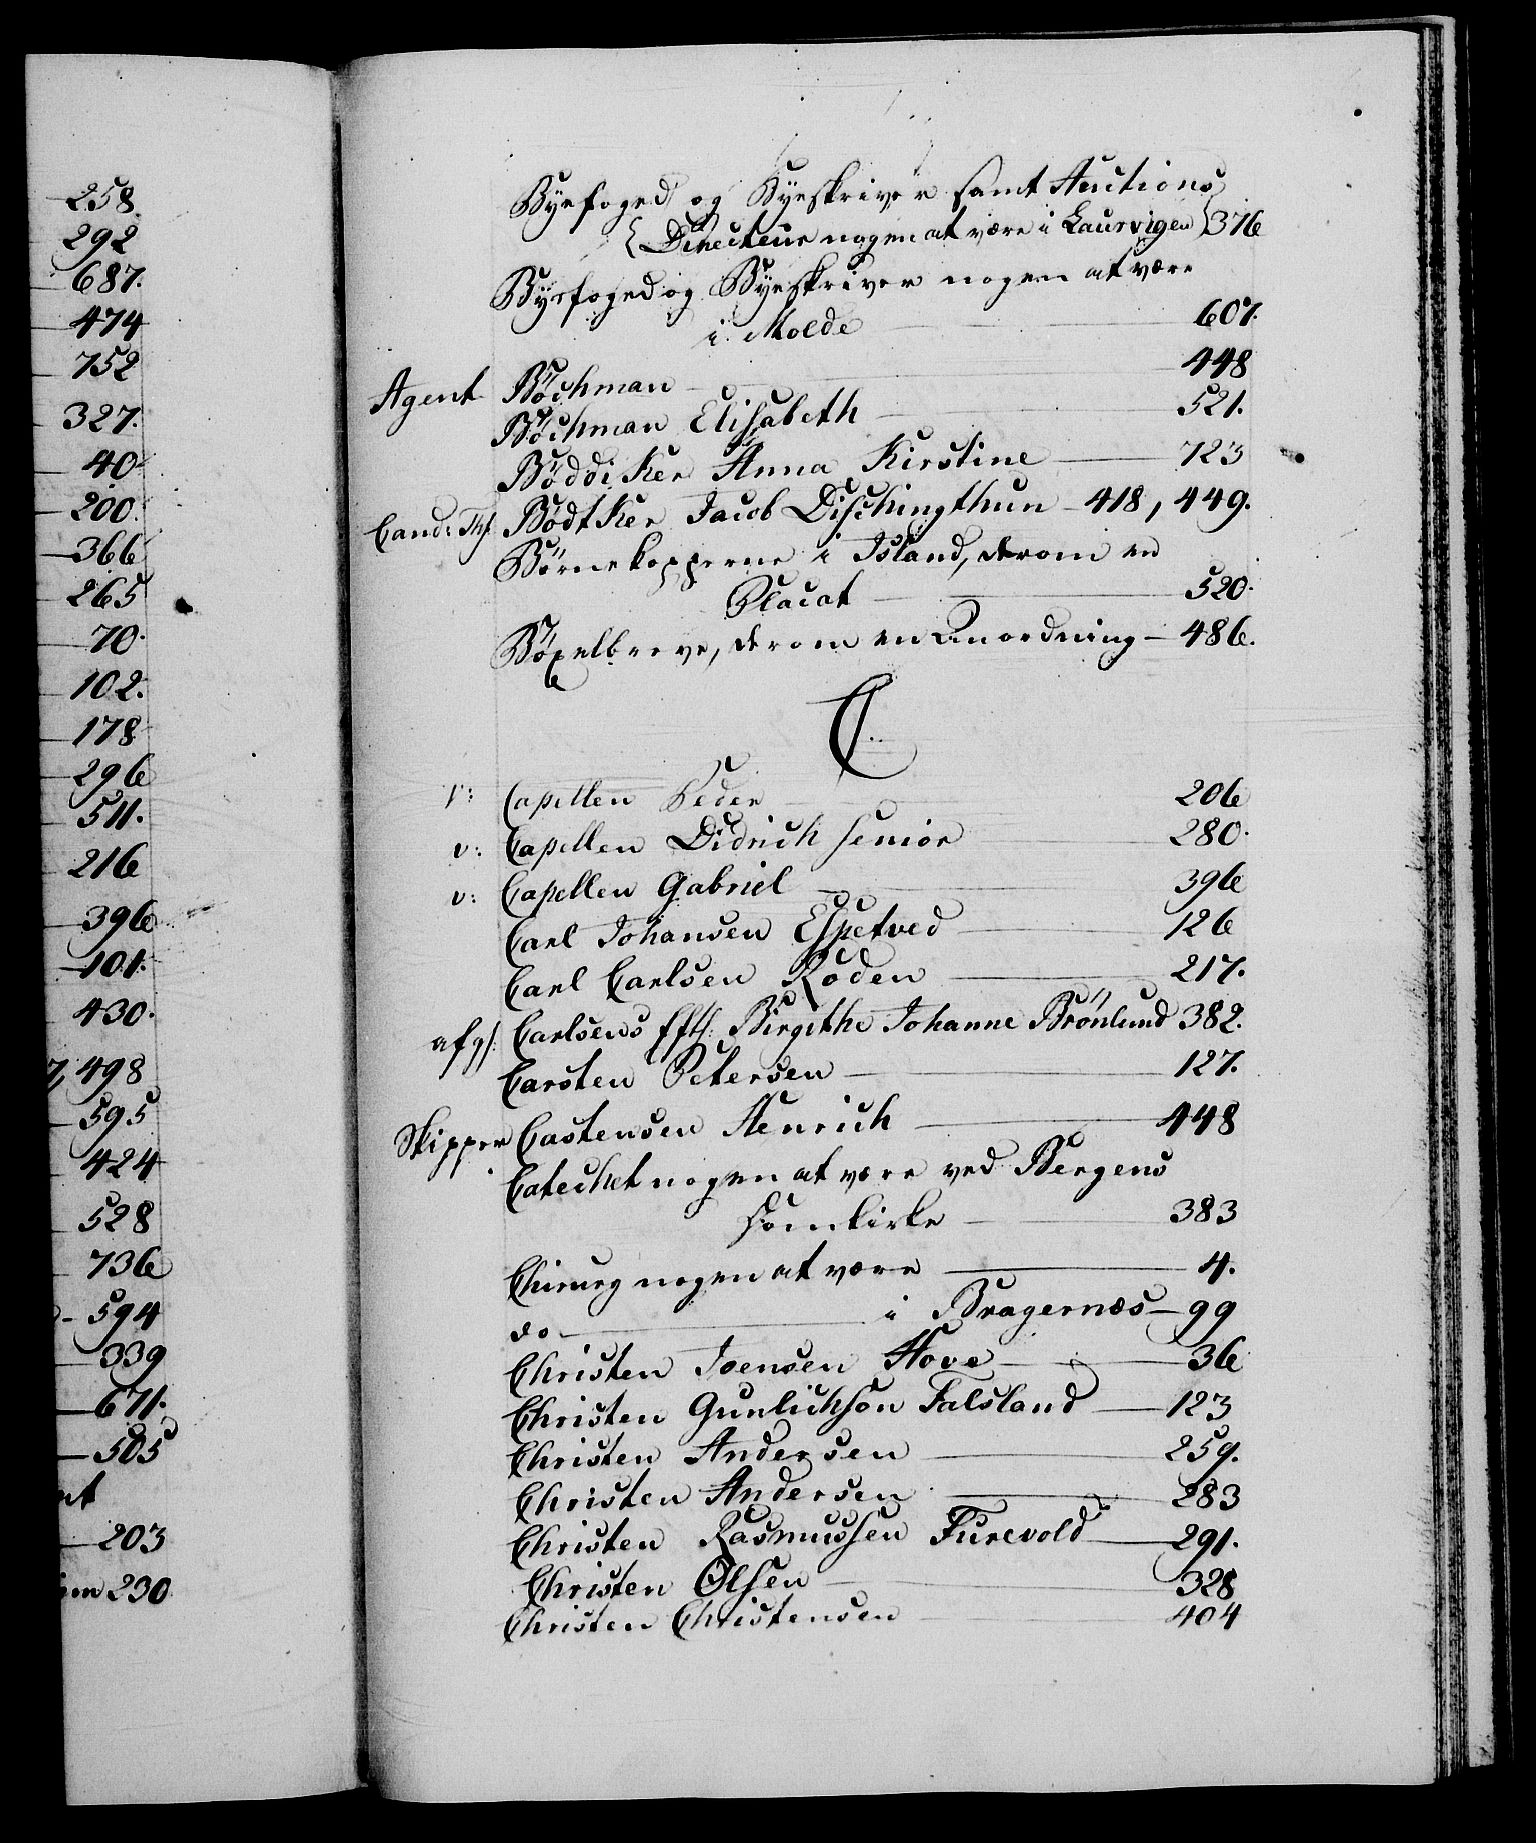 258.
292
687.
474
752
327.
40
200.
366
265
70.
102.
178
296
511.
216
396
101.
430.
7, 498
595
424
528
736
- 594
339
671.
505
nt
203
230
Byefoged og Byeskriver samt Auctions
Directeur nogen at være i Laurvigen 376
Byefoged og Byeskriver nogen at være
i Molde 607.
Agent Böchman 448
Böchman Elisabeth 521.
Böddiker Anna Kirstine 723
Cand: Th: Bödtker Jacob Dischingthun 418, 449.
Börnekopperne i Island, derom en
Placat 520.
Böxelbreve, derom en Anordning 486.
C.
v: Capellen Peder 206
v: Capellen Didrich Senior 280.
v: Capellen Gabriel 396
Carl Johansen Espetved 126
Carl Carlsen Roden 217.
afg: Carlsens Efth: Birgithe Johanne Brönlund 382.
Carsten Petersen 127.
Skipper Castensen Henrich 448
Catechet nogen at være ved Bergens
Domkirke 383
Chirurg nogen at være 4.
do i Bragernæs 99
Christen Joensen Hove 36
Christen Gunlichson Falsland 123
Christen Andersen 259.
Christen Andersen 283
Christen Rasmussen Furevold 291.
Christen Olsen 328
Christen Christensen 404